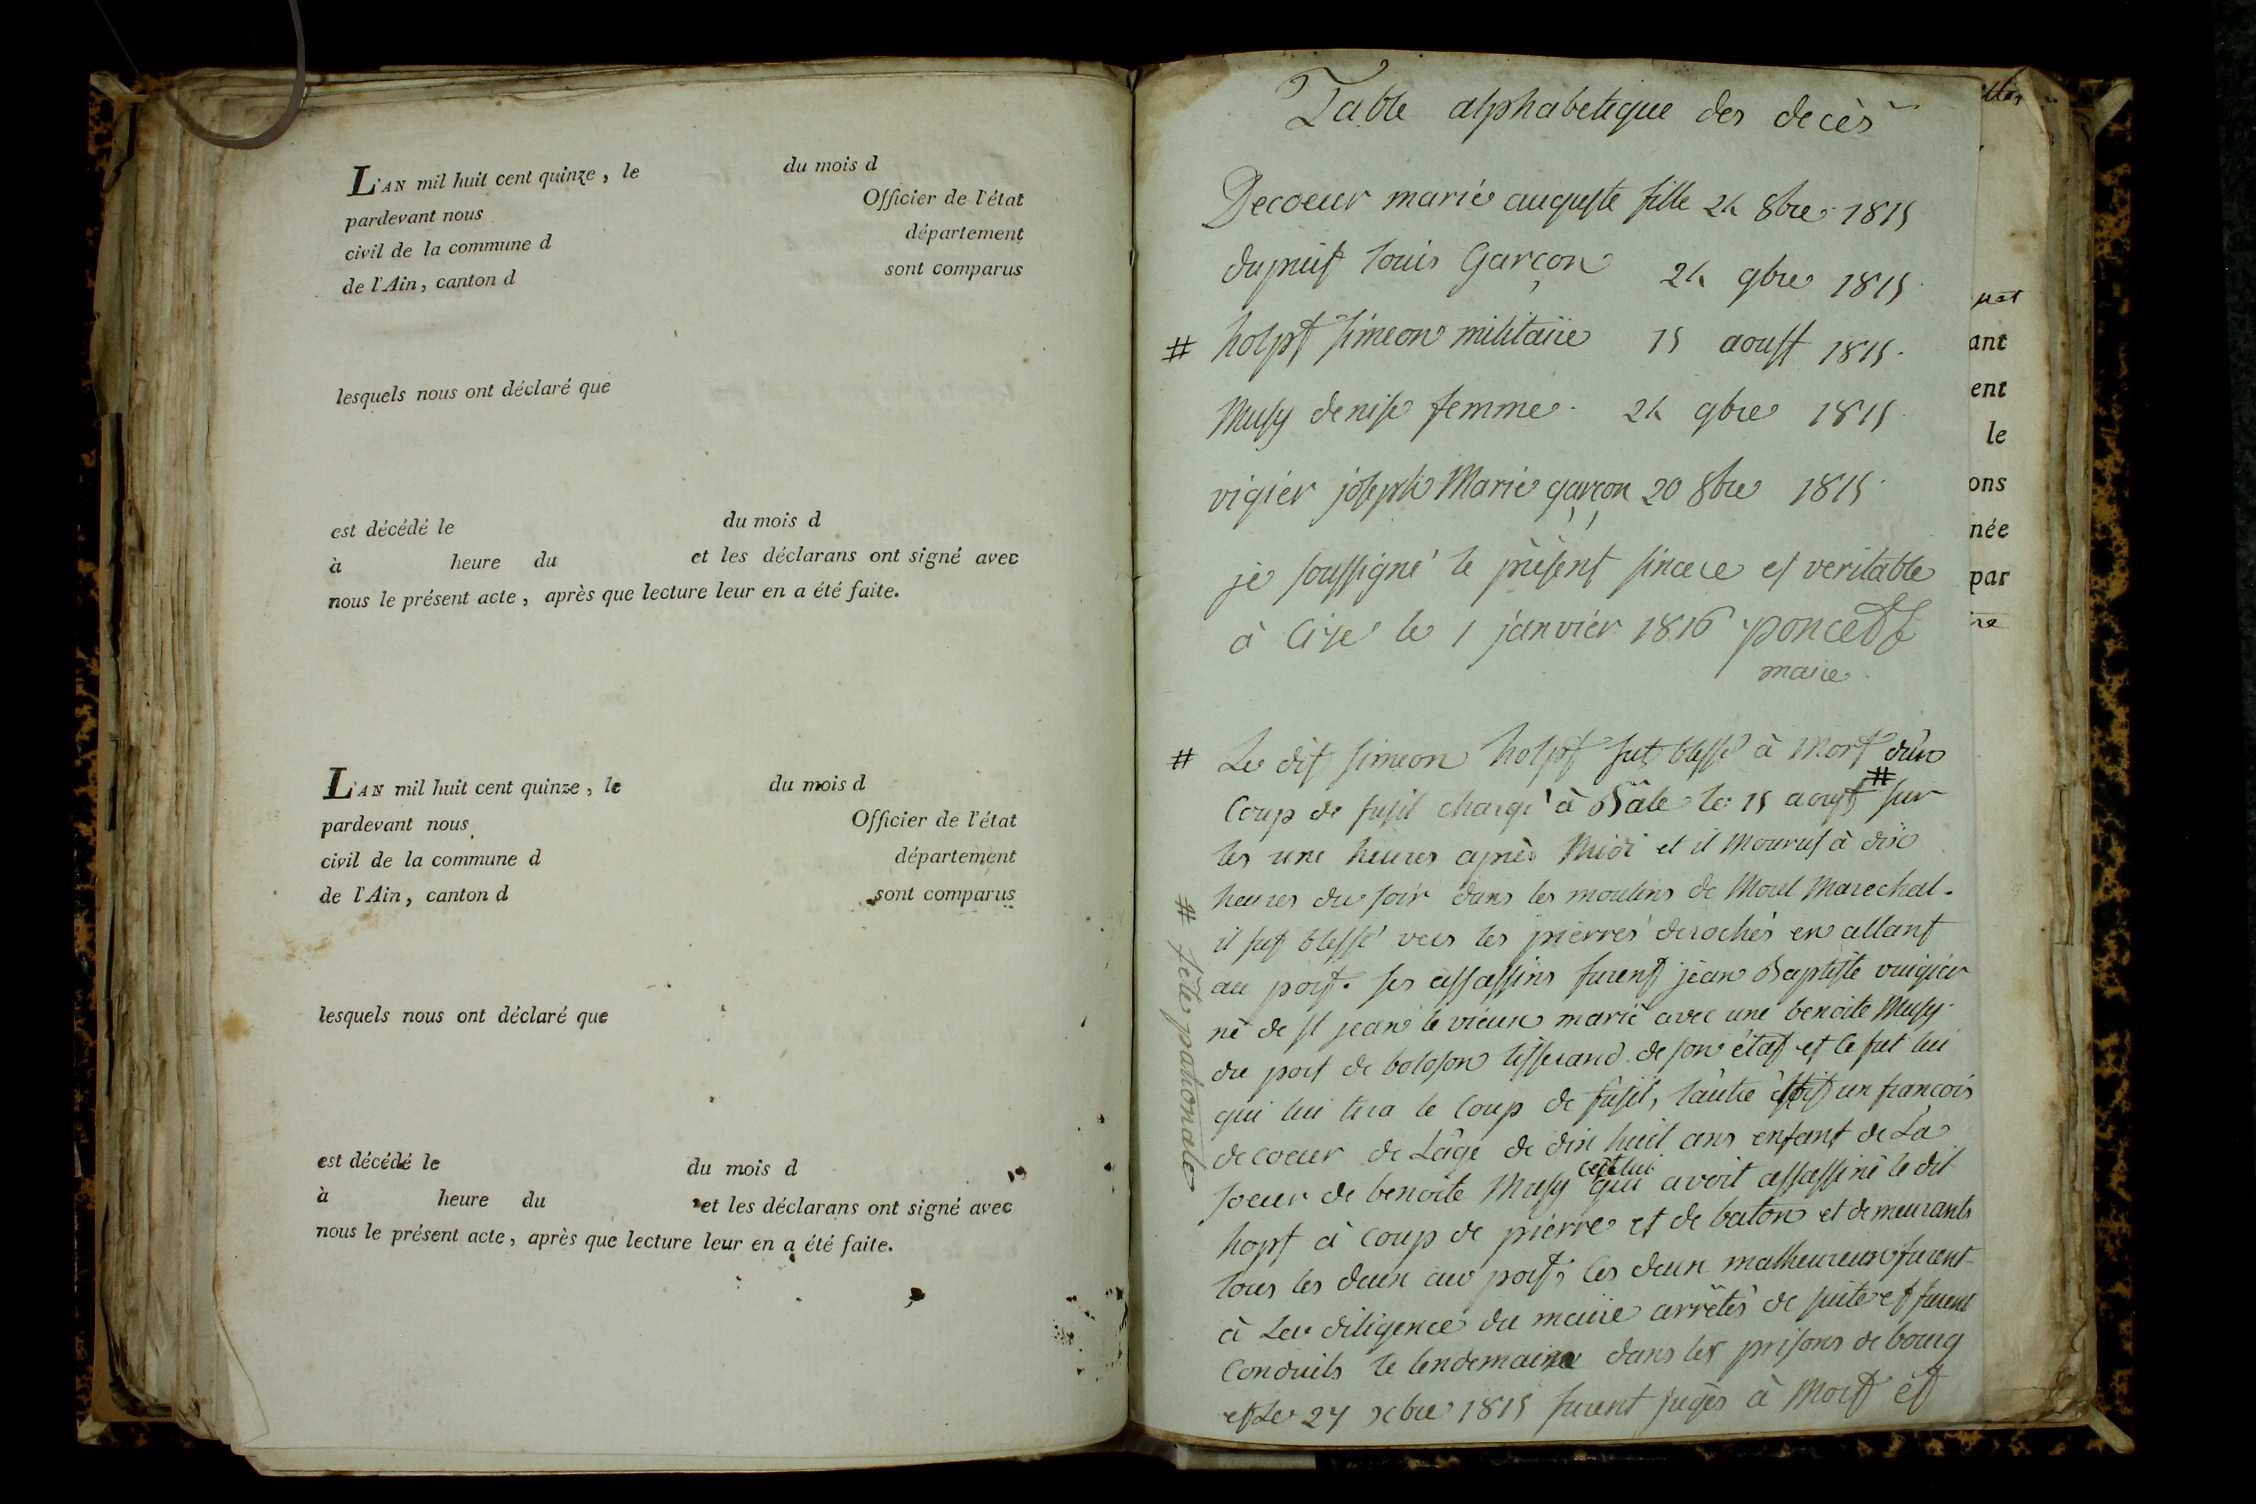 L'AN mil huit cent quinze, le du mois d
pardevant nous Officier de l'état
civil de la commune d département
de l'Ain, canton d sont comparus
lesquels nous ont déclaré que
est décédé le du mois d
à heure du et les déclarans ont signé avec
nous le présent acte, après que lecture leur en a été faite.
L'AN mil huit cent quinze, le du mois d
pardevant nous Officier de l'état
civil de la commune d département
de l'Ain, canton d sont comparus
lesquels nous ont déclaré que
est décédé le du mois d
à heure du et les déclarans ont signé avec
nous le présent acte, après que lecture leur en a été faite.
Table alphabetique des decès
Decoeur marie auguste fille 24 8bre 1815
dupuit louis Garçon 24 9bre 1815
# holpt simeon militaire 15 aoust 1815.
Musy denise femme. 24 9bre 1815
vigier joseph Marie garçon 20 8bre 1815.
je soussigné le présent sincere et veritable
à Cize le 1 janvier 1816 poncet
maire.
# Le dit simeon holpt fut blessé à Mort d'un
coup de fusil chargé à Bâle le 15 aoust # sur
les une heures après Midi et il Mourut à dix
heures du soir dans les moulins de Moel Marechal.
il fut blessé vers les pierres derochés en allant
au port. ses assassins furent jean Baptiste vuigier
né de st jean le vieux marié avec une benoite Musy
du port de boloson tisserand de son état et ce fut lui
qui lui tira le coup de fusil, l'autre étoit un francois
decoeur de Lâge de dix huit ans enfant de La
soeur de benoite Musy cest lui qui avoit assassiné le dit
hopt à coup de pierre et de baton et demeurants
tous les deux au port, les deux malheureux furent
à La diligence du maire arrêtés de suite et furent
conduits le lendemain dans les prisons de bourg
et Le 27 xbre 1815 furent jugés à Mort et
# fête pationale
uet
ant
ent
le
ons
née
par